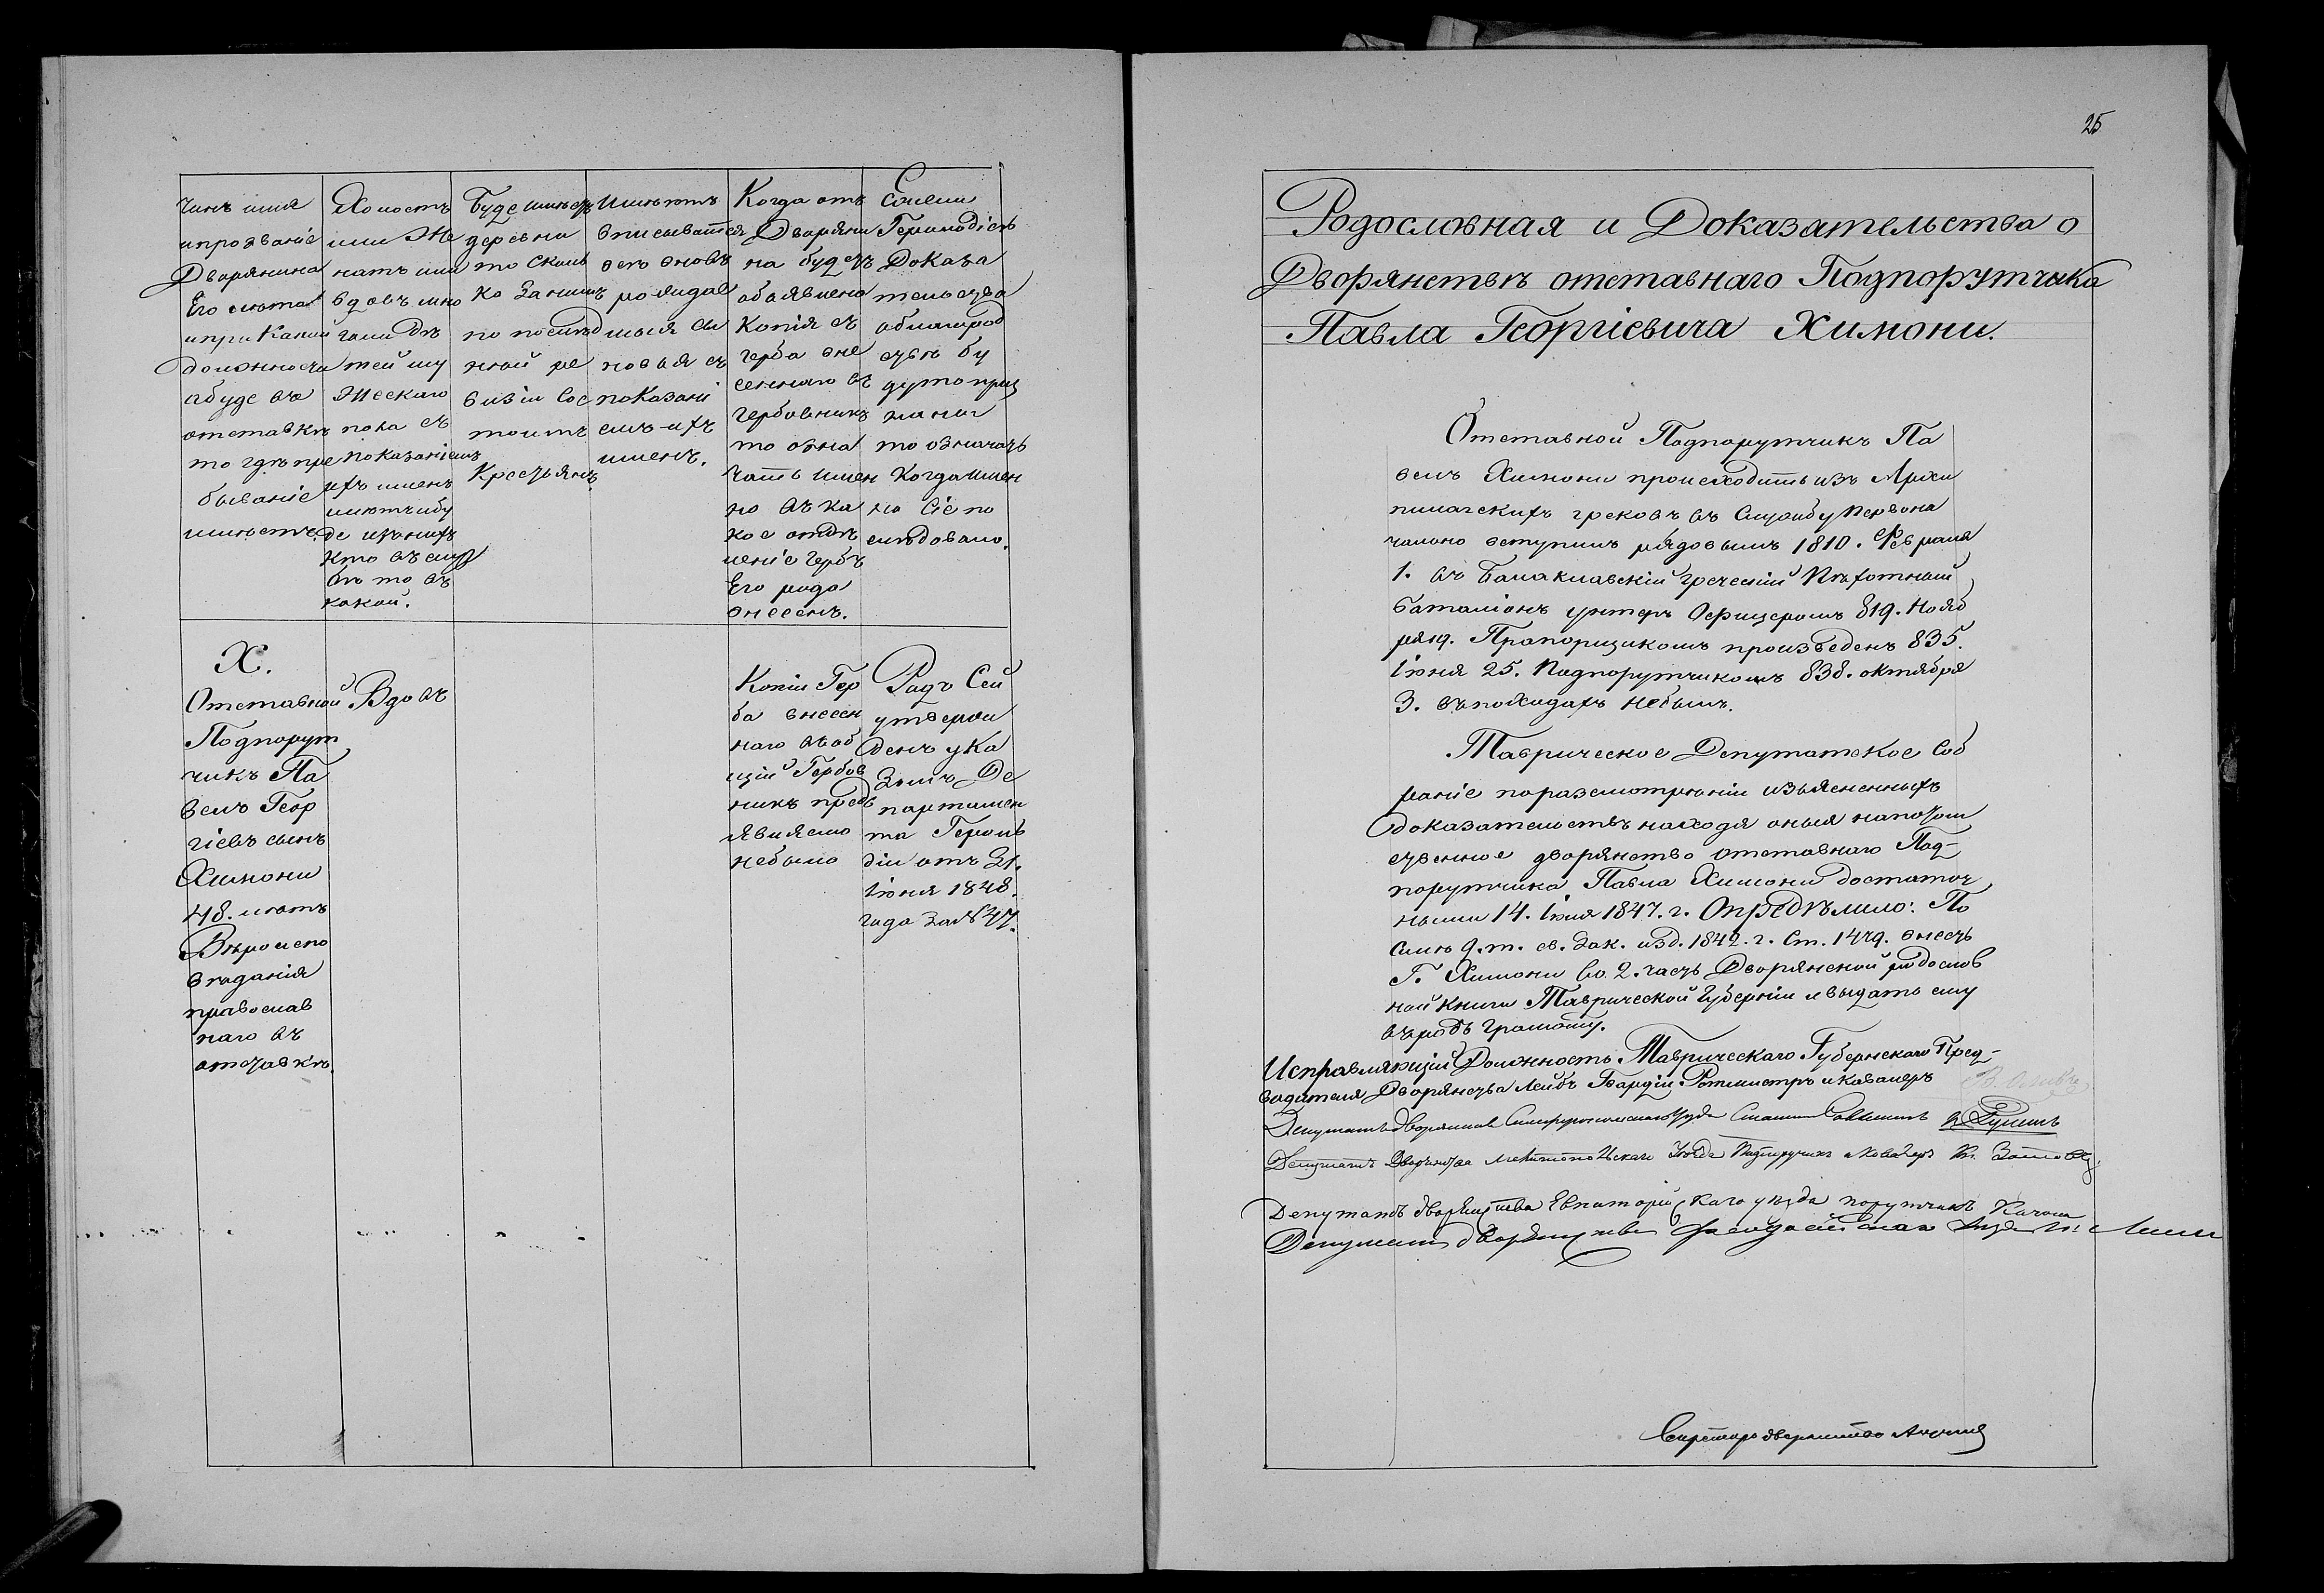 Чинъ имя
и прозваніе
Дворянина
Его лѣта
и при какой
должности
а буде въ
отставкѣ
то гдѣ пре
бываніе
имѣетъ.
Холостъ
или Же
натъ или
вдовъ мно
голи дѣ
тей му
жескаго
пола съ
показаніемъ
ихъ именъ
и лѣтъ и бу
де изъ нихъ
кто въ служ
бѣ то въ
какой.
Буде имѣетъ
деревни
то сколь
ко за нимъ
по послѣд
ней ре
визіи сос
тоитъ
крестьянъ.
Имѣютъ
вписыватся
всѣ вновь
рождае
мыя сы
новья съ
показані
емъ ихъ
именъ.
Когда отъ
Дворяни
на будетъ
объявлена
копія съ
герба вне
сеннаго въ
гербовникъ
то озна
чать имен
но въ ка
кое отдѣ
леніе гербъ
Его рода
внесенъ.
Есчели
Герольдіею
Доказа
тельства
облагород
ствѣ бу
дутъ приз
наны
то означать
когда имен
но сіе по
слѣдовало.
Х.
Отставной
Подпорут
чикъ Па
велъ Геор
гіевъ сынъ
Химони
48. лѣтъ
Вѣроиспо
вѣданія
православ
наго въ
отставкѣ.
Вдовъ
Копіи Гер
ба внесен
наго въ об
щій Гербов
никъ предъ
являемо
небыло
Родъ Сей
утверж
денъ ука
зомъ Де
партамен
та Героль
діи отъ 31.
Іюня 1848.
года за № 47.
25
Родословная и Доказательства о
Дворянствѣ отставнаго Подпорутчика
Павла Георгіевича Химони.
Отставной Подпорутчикъ Па
велъ Химони происходитъ изъ Архи
пилагскихъ грековъ въ Службу первона
чально вступилъ рядовымъ 1810. Февраля
1. въ Балаклавскій греческій Пѣхотный
баталіонъ унтеръ Офицеромъ 819. Нояб
ря 19. Прапорщикомъ произведенъ 835.
Іюня 25. Подпорутчикомъ 838. октября
3. въ походахъ небылъ.
Таврическое Депутатское Соб
раніе поразсмотрѣніи изъясненныхъ
доказательствъ находя оныя напотом
ственное дворянство отставнаго Под-
порутчика Павла Химони достаточ
ными 14. Іюня 1847. г. Опредѣлило: По
силѣ 9. т. св. Зак. изд. 1842. г. Ст. 1479. внесть
Г. Химони во. 2. часть Дворянской родослов
ной книги Таврической Губерніи и выдать ему
въ родъ грамоту.
Исправляющій Должность Таврическаго Губернскаго Пред-
водителя Дворянства Лейбъ Гвардіи Ротмистръ и кавалеръ
Депутатъ дворянства Симферопольскаго Уѣзда
Депутатъ Дворянства Мелитопольскаго Уѣзда Подпоручикъ и Кавалеръ
Депутатъ дворянства Евпаторійскаго уѣзда порутчикъ Качони
Депутатъ дворянства Феодосійскаго уѣзда
Секретарь дворянства